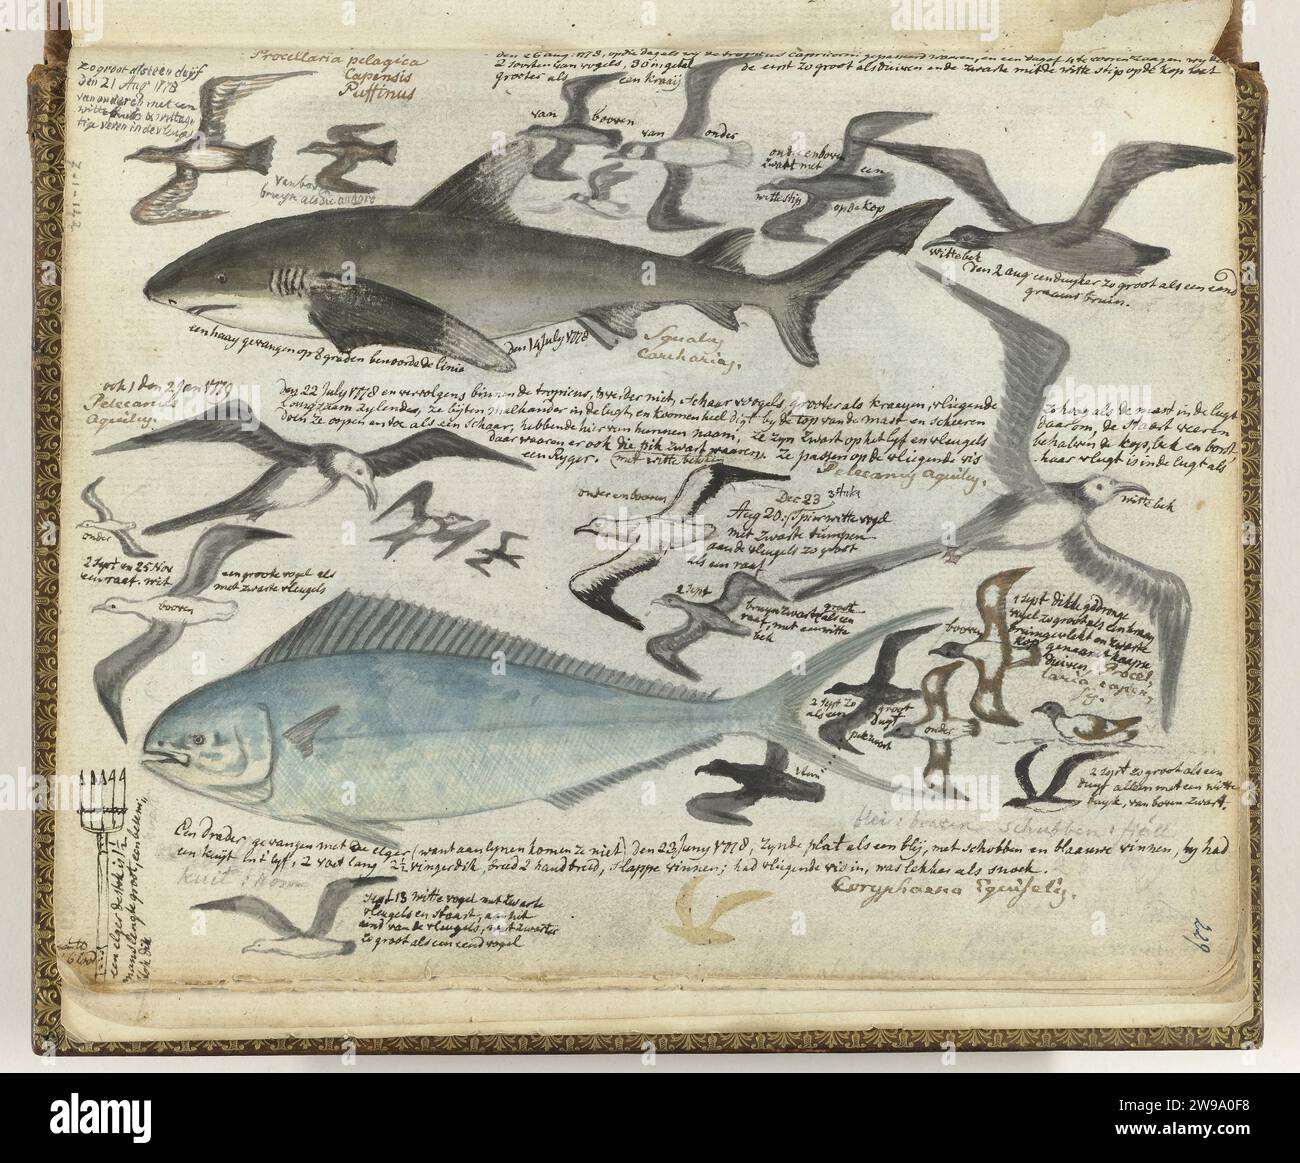 zo groot als een duijf
den 21 Aug 1778
van onderen met een
witte
veren in de vleugel
Procellaria pelagica
Capensis
Puffinus
den 26 aug. 1778, op die dag als wij de tropicus Capricorni gepasseerd waren, en een dag of 4 te voren zaagen wij de
2 soorten van vogels, 30 in getal de eerst zo groot als duiven en de zwarte mit de witte stip op de kop wat
grooter als een kraaij
van boven
van onder
van boven
bruyn als die andere
onder en boven
zwart met een
witte stip op de kop
witte bek
den 2 aug: een duyker zo groot als een eend
graauw bruin.
een haay gevangen op 8 graden benoorde de linie den 14 July 1778
Squalus
Carcharias.
ook 1 den 2 Jan 1779
Pelecanus
Aquilus.
den 22 July 1778 en vervolgens binnen de tropicus, verder niet, schaar voogels, grooter als kraeyen, vliegende
langzaam zylende, ze byten malkander in de lugt en koomen heel digt by de top van de mast en scheeren
doen ze open en toe als een schaar, hebbende hier van hunnen naam, ze zyn zwart op het lyf en vleugels
daar waaren er ook die pik zwart waaren, ze passen op de vliegende vis
een Ryger. (met witte bekken)
Pelecanus Aquilus.
zo hoog als de mast in de lugt
daarom, de staart veeren
behalven de kop, bek en borst,
haar vlugt is in de lugt als
witte bek
onder en boven
Dec 23 3 stuks
Aug 20: Spier witte vogel
met zwarte stompen
aan de vleugels zo groot
als een raaf
onder
2 Sept en 25 Nov
een raaf. wit
een groote vogel als
met zwarte vleugels
boven
2 Sept
bruyn zwart groot
raaf, met een witte
bek
boven
1 Sept dikke gedronge
vogel zo groot als een kraay
bruin gevlekt en zwarte
kop genaamt kaapse
duiven, Procel,
laria capen,
sis.
2 Sept zo groot
als een duyf
pikzwart
onder
idem
2 Sept zo groot als een
duyf alleen met een witte
buyk, van boven zwart.
een elger de stok is 1½
mans lengte groot, een beitel,
stok dik
schubben
Een Drades gevangen met de elger (want aan lynen komen ze niet) den 22 Juny 1778, zynde plat als een bly, met schobben en blaauwe vinnen, hy had
een kuijt in 't lyf, 2 voet lang, 2½ vinger dik, breed 2 hand breed, slappe vinnen; had vliegende vis in, was lekker als snoek.
kuit
Coryphaena Equiselis.
Sept 13 witte vogel met zwarte
vleugels en staart, aan het
eind van de vleugels, wat zwarter
zo groot als een eendvogel
229
alamy
Image ID: 2W9A0F8
www.alamy.com